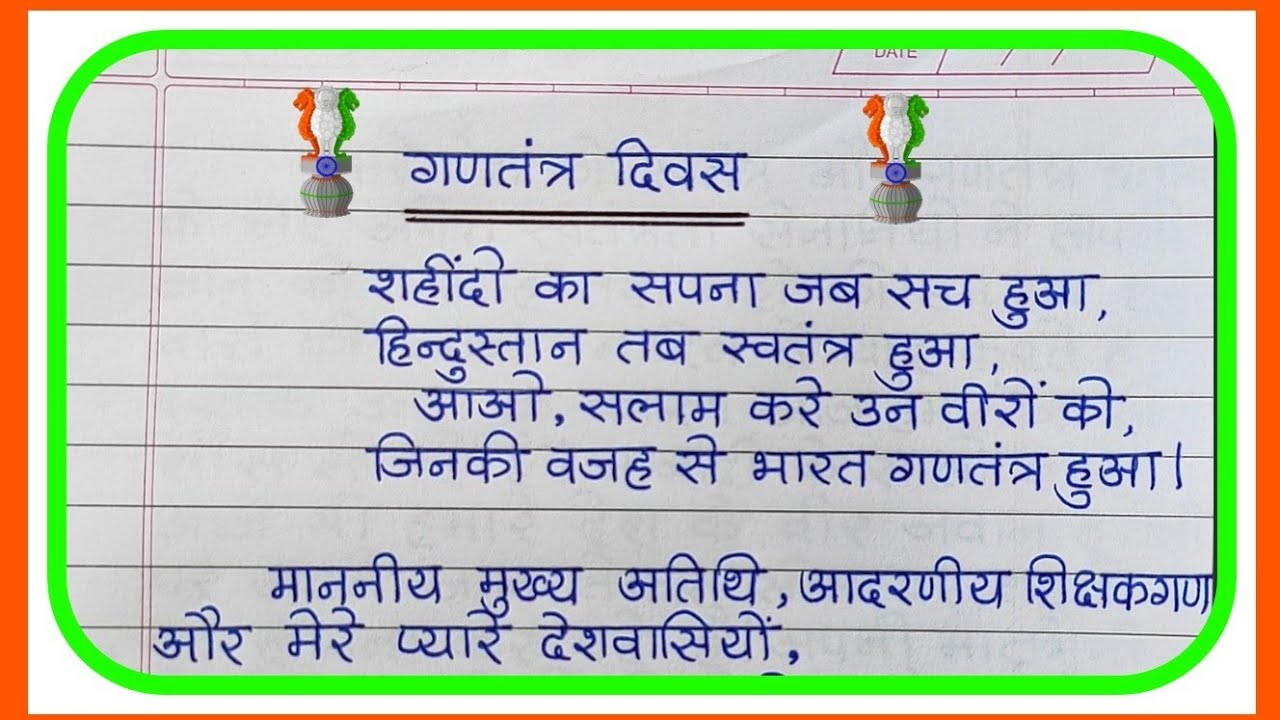 DATE
गणतंत्र दिवस
शहींदो का सपना जब सच हुआ,
हिन्दुस्तान तब स्वतंत्र हुआ,
आओ, सलाम करे उन वीरों को,
जिनकी वजह से भारत गणतंत्र हुआ।
माननीय मुख्य अतिथि, आदरणीय शिक्षकगण
और मेरे प्यारे देशवासियों,